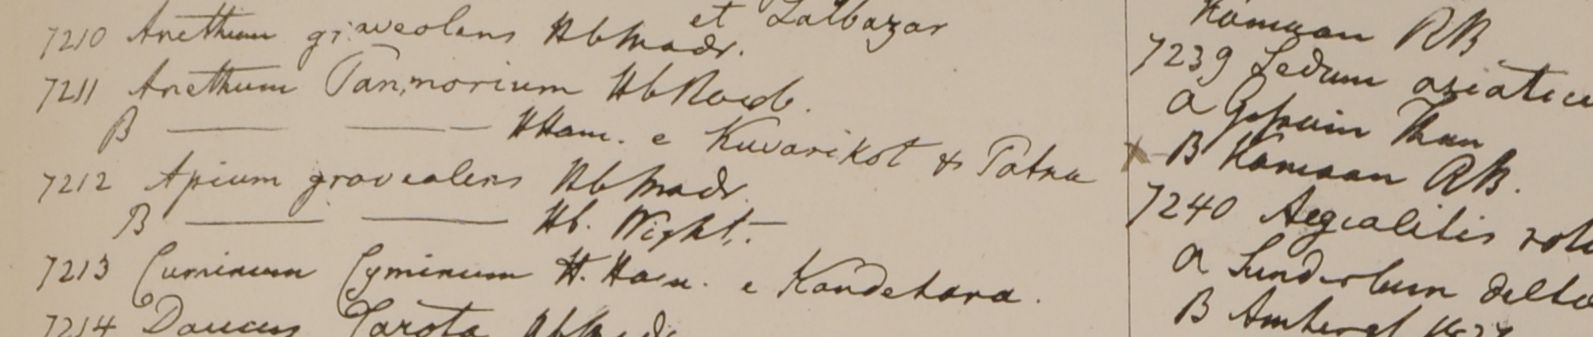 et Lallbazar
7210 Anethum graveolens HbMadr.
7211 Anethum Panmorium HbRoxb.
B — — HHam. e Kuvarikot & Patna
7212 Apium graveolens HbMadr.
B — — Hb. Wight.
7213 Cuminum Cyminum H. Ham. e Kandehara.
7214 Daucus Carota
Kamaon RB
7239 Sedum asiaticu
a Gossain Than
B Kamaon RB.
7240 Aegialitis rotu
a Sunderbun delta
B Amherst 1827